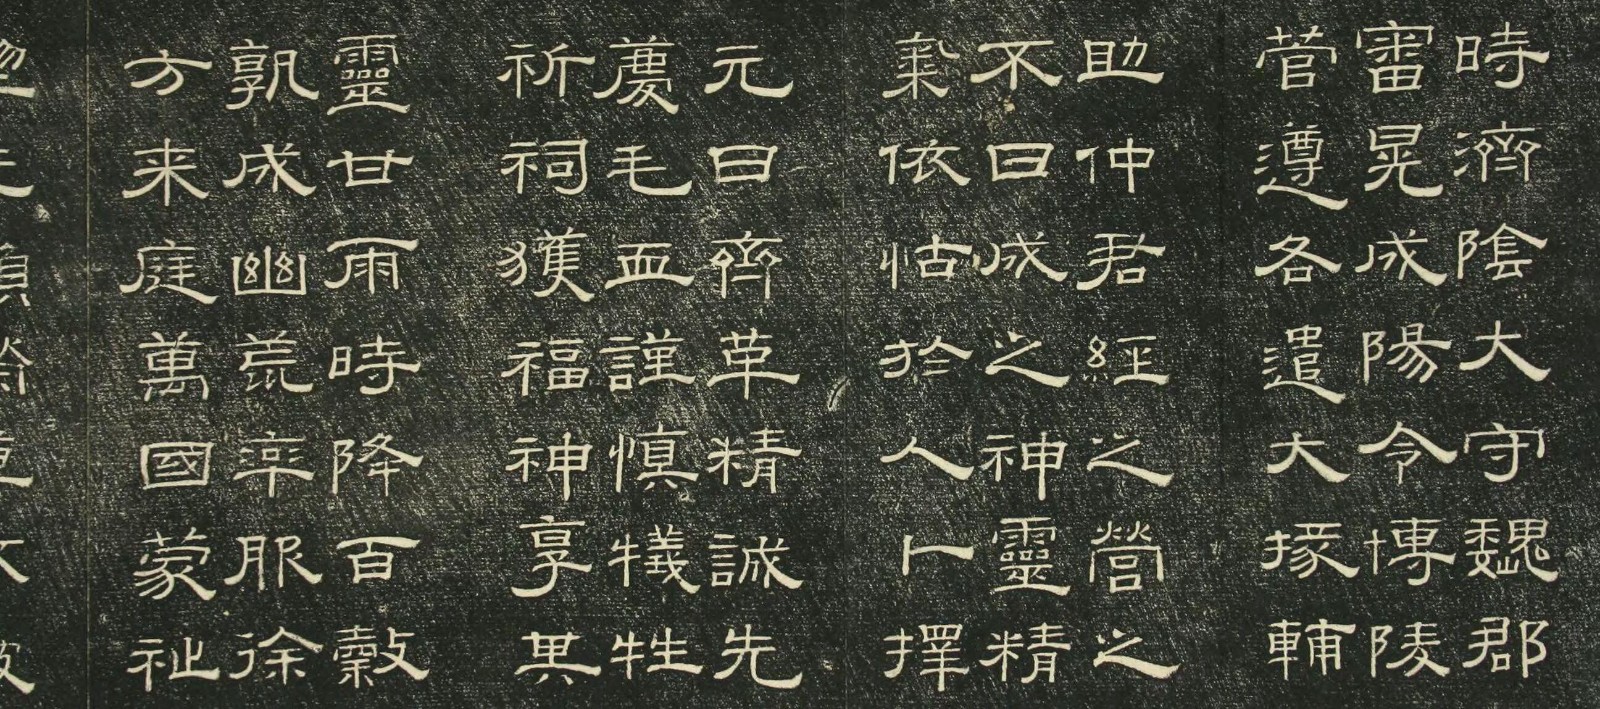 時濟陰大守魏郡
審晃成陽令博陵
菅遵各遣大掾輔
助仲君經之營之
不日成之神靈精
氣依怙於人卜擇
元日齊革精誠先
慶毛血謹慎犧牲
祈祠獲福神享其
靈甘雨時降百穀
孰成幽荒率服徐
方来庭萬國蒙祉